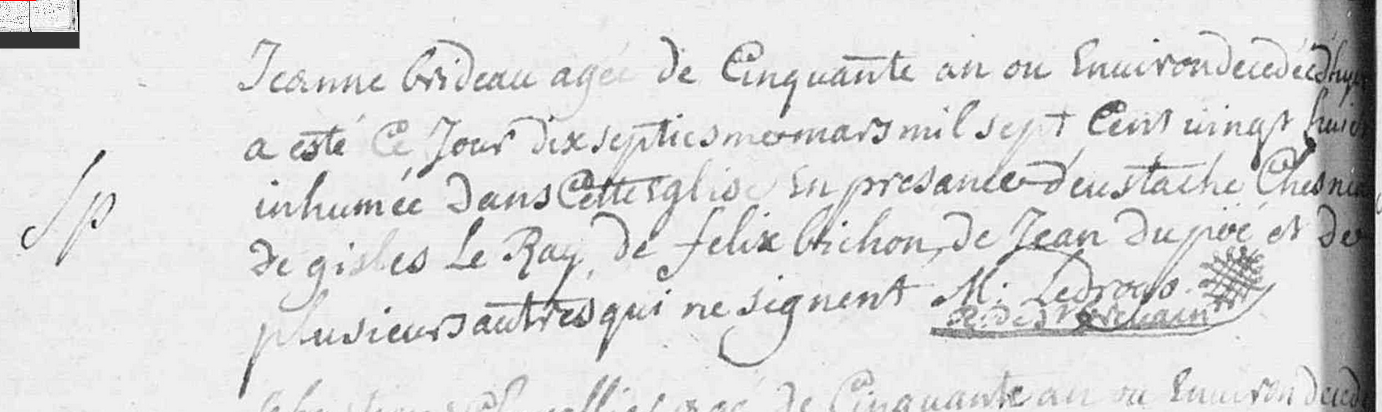 Jeanne brideau agée de Cinquante an ou Enuiron decedée d'hyer
a esté Ce Jour dix septiesme mars mil sept Cent uingt huict
Sp
inhumée dans Cette Eglise En presance d'eustache Chesn
de gisles Le Ray, de felix bichon, de Jean dupöé et de
plusieurs autres qui ne signent M. Ledrous
R. de St
agé de Cinquante an ou Enuiron deced